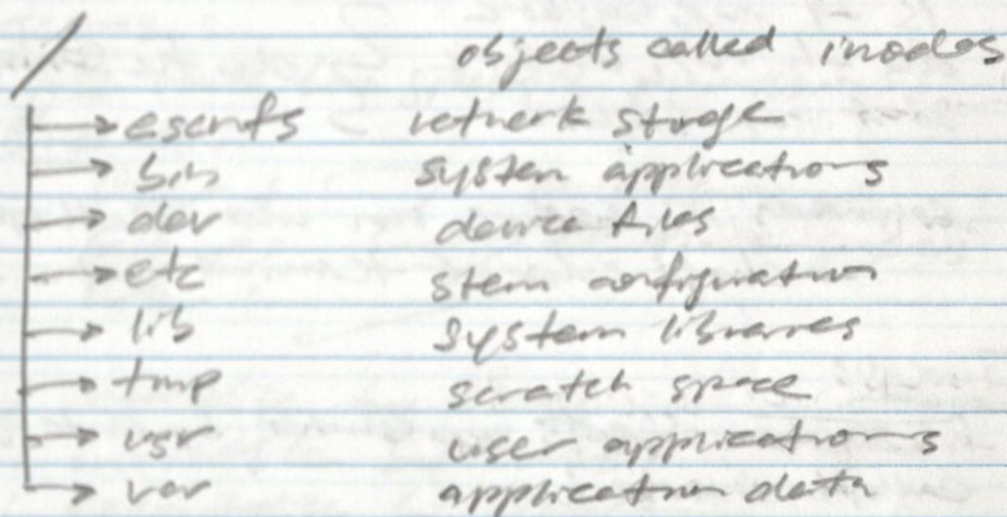 / objects called inodes
escnfs network storage
bin system applications
dev device files
etc stem configuration
lib system libraries
tmp scratch space
usr user applications
var application data